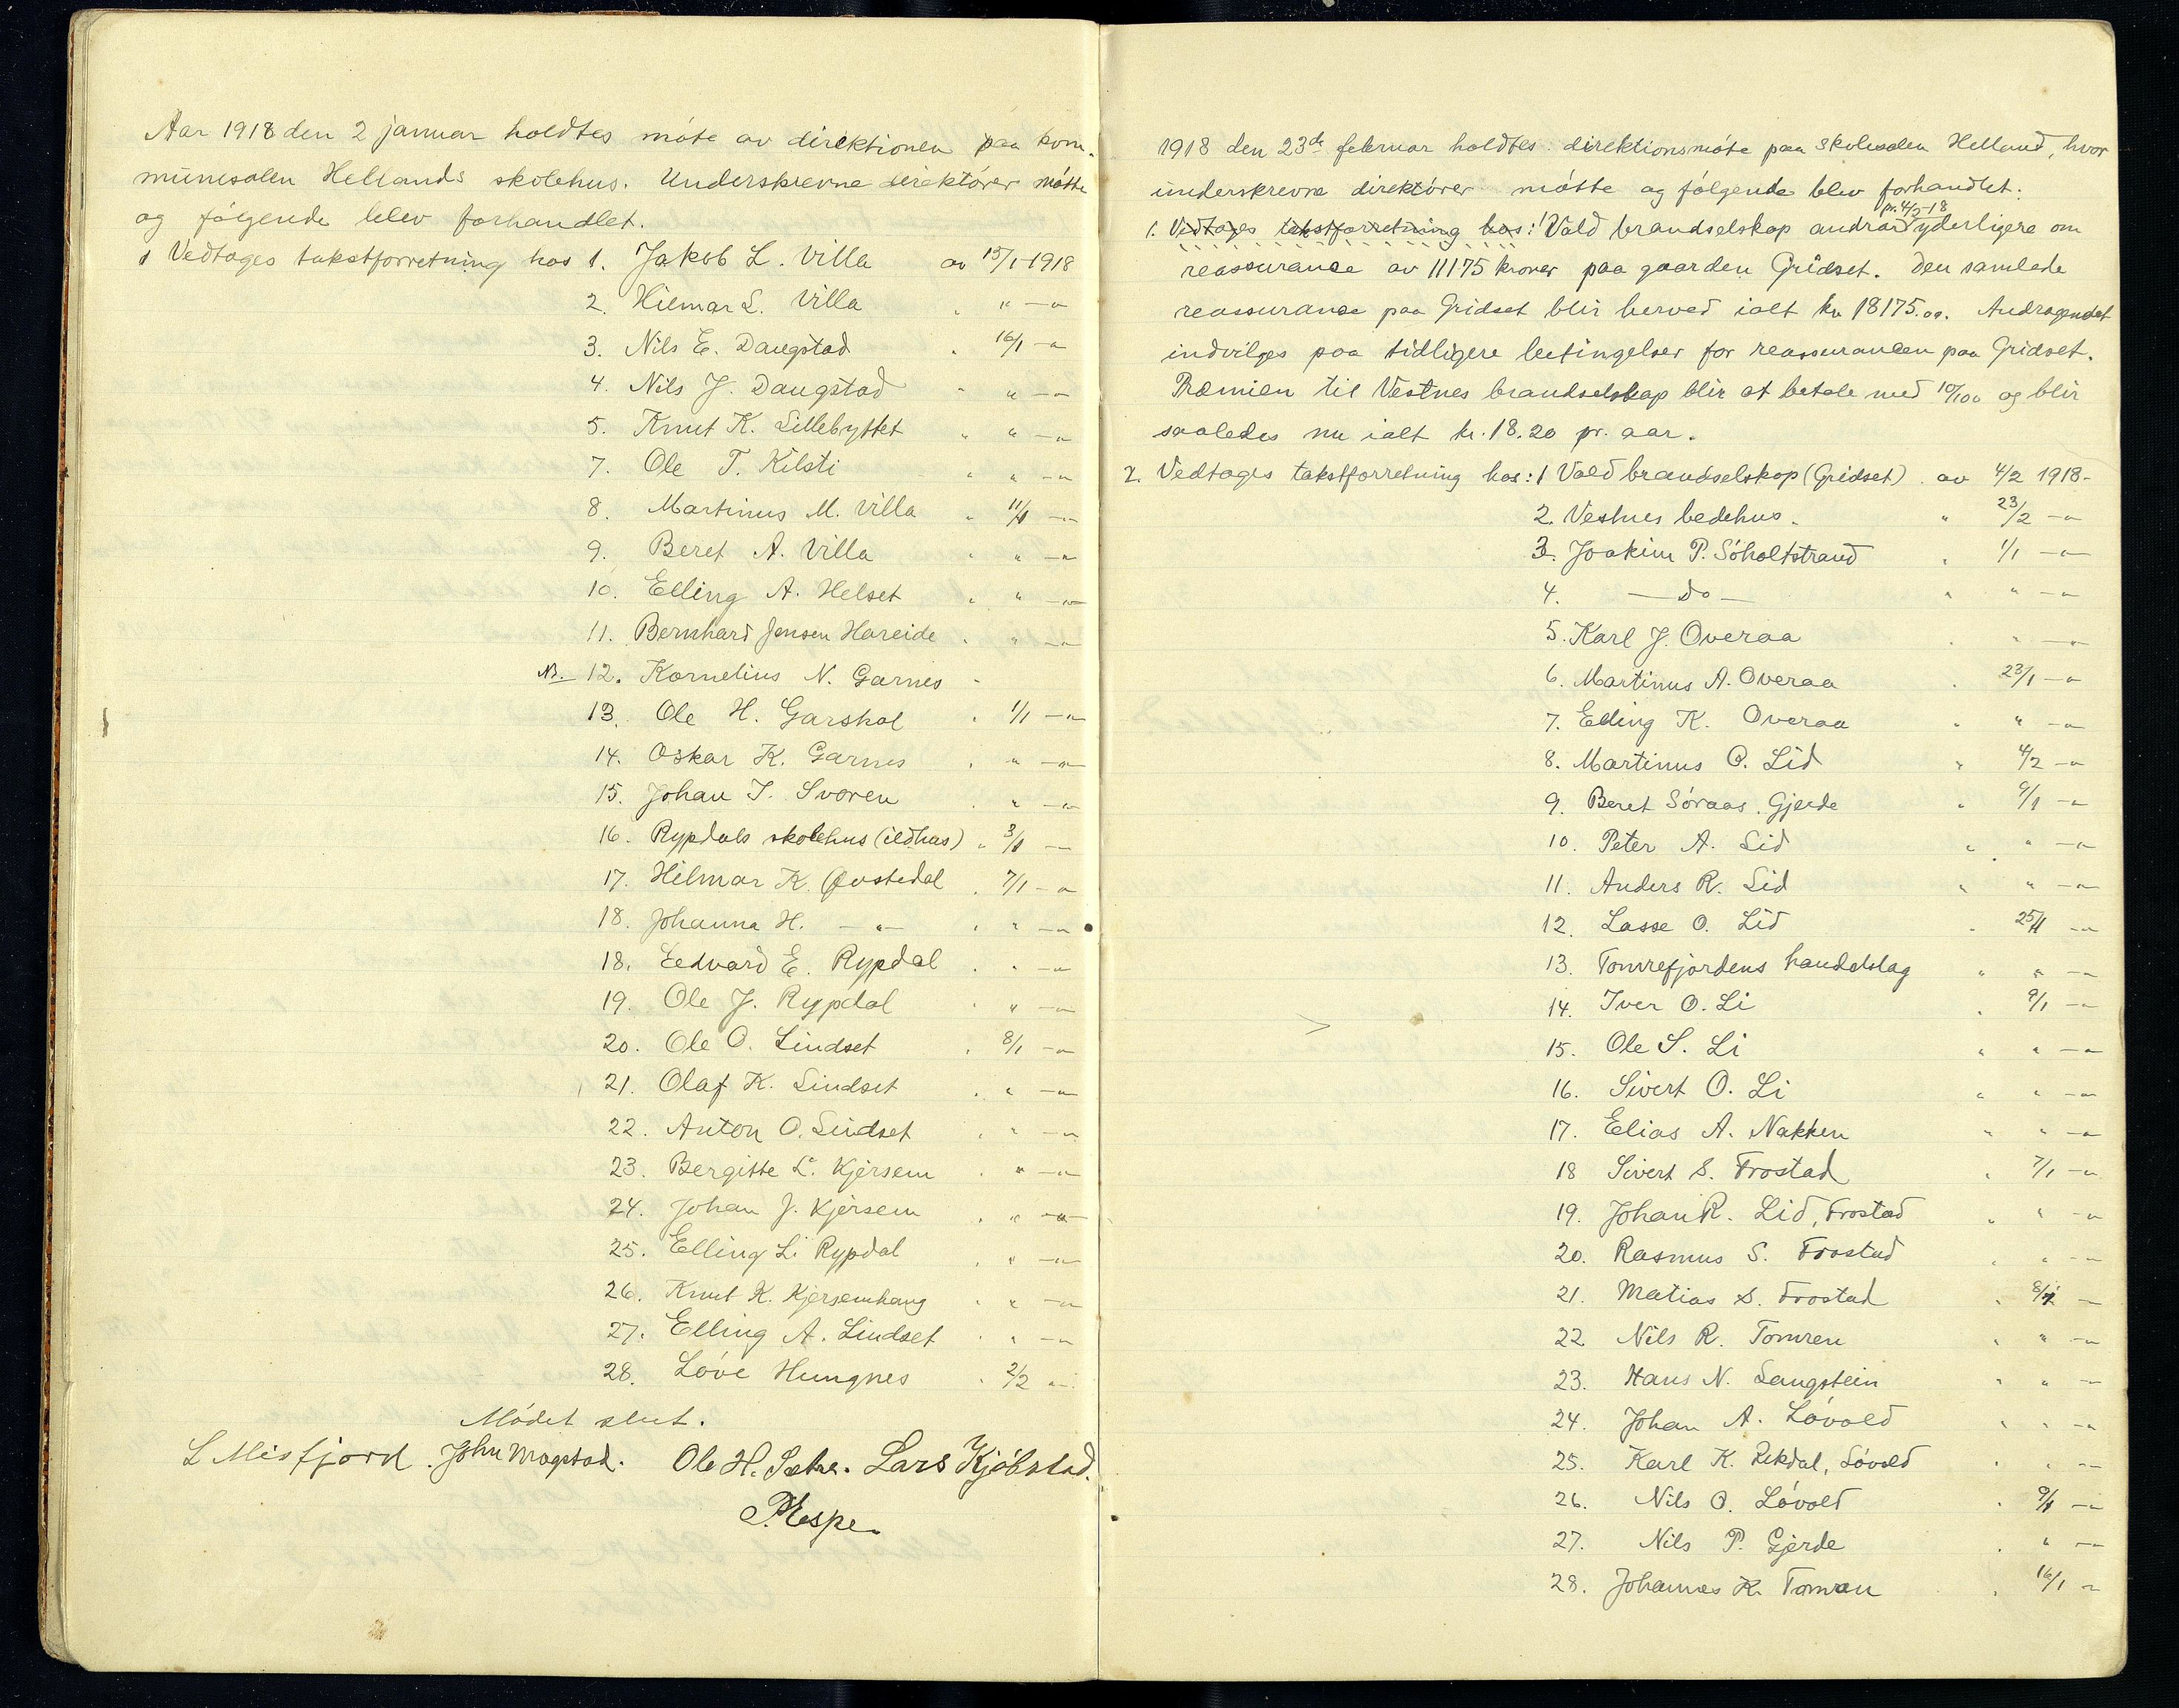 Aar 1918 den 2 januar holdtes møte av direktionen paa kom-
munesalen Hellands skolehus. Underskrevne direktører møtte
og følgende blev forhandlet.
1 Vedtages takstforretning hos 1. Jakob L. Villa av 15/1-1918
2. Hilmar L. Villa " " - "
3. Nils E. Daugstad " 16/1 - "
4. Nils J. Daugstad " " - "
5. Knut K. Lillebyttet " " - "
7. Ole T. Kilsti " " - "
8. Martinus M. Villa " 11/1 - "
9. Beret A. Villa " " - "
10. Elling A. Helset " " - "
11. Bernhard Jensen Hareide " " - "
NB. 12. Kornelius N. Garnes "
13. Ole H. Garshol " 1/1 - "
14. Oskar K. Garnes " " - "
15. Johan I. Svoren " " - "
16. Rypdals skolehus (ildhus) " 3/1 -
17. Hilmar K. Øvstedal " 7/1 - "
18. Johanna H. - " - " " - "
18. Eedvard E. Rypdal " " - "
19. Ole J. Rypdal " " - "
20. Ole O. Lindset " 8/1 - "
21. Olaf K. Lindset " " - "
22. Anton O. Lindset " " - "
23. Bergitte L. Kjersem " " - "
24. Johan J. Kjersem " " - "
25. Elling Li Rypdal " " - "
26. Knut K. Kjersemhaug " " - "
27. Elling A. Lindset " " - "
28. Løve Hungnes " 2/2 "
Mødet slut.
L Misfjord. John Mogstad. Ole H. Sætre. Lars Kjøbstad.
P. Respe.
1918 den 23de februar holdtes direktionsmøte paa skolesalen Helland, hvor
underskrevne direktører møtte og følgende blev forhandlet:
pr. 4/2-18
1. Vedtages takstforretning hos: 1 Vold brandselskap andrar yderligere om
reassurance av 11175 kroner paa gaarden Gridset. Den samlede
reassurance paa Gridset blir herved ialt kr 18175.00. Andragendet
indvilges paa tidligere betingelser for reassurancen paa Gridset.
Præmien til Vestnes brandselskap blir at betale med 10/100 og blir
saaledes nu ialt kr. 18.20 pr. aar.
2. Vedtages takstforretning hos: 1 Vold brandselskap (Gridset) av 4/2 1918-
2. Vestnes bedehus. " 23/2 - "
3. Joakim P. Søholtstrand " 1/1 - "
4. - do - " " - "
5. Karl J. Overaa " " - "
6. Martinus A. Overaa " 23/1 - "
7. Elling K. Overaa " " - "
8. Martinus O. Lid " 4/2 - "
9. Beret Søraas, Gjerde " 9/1 - "
10. Peter A. Lid " " - "
11. Anders R. Lid " " - "
12. Lasse O. Lid " 25/1 - "
13. Tomrefjordens handelslag " " - "
14. Iver O. Li " 9/1 - "
15. Ole S. Li " " - "
16. Sivert O. Li " " - "
17. Elias A. Nakken " " - "
18 Sivert S. Frostad " 7/1 - "
19. Johan R. Lid, Frostad " " - "
20. Rasmus S. Frostad " " - "
21. Matias S. Frostad " 8/1 -
22 Nils R. Tomren " " - "
23. Hans N. Langstein " " - "
24. Johan A. Løvold " " - "
25. Karl K. Rekdal, Løvold " " - "
26. Nils O. Løvold " 9/1 - "
27. Nils P. Gjerde " " - "
28. Johannes K. Tomren " 16/1 - "